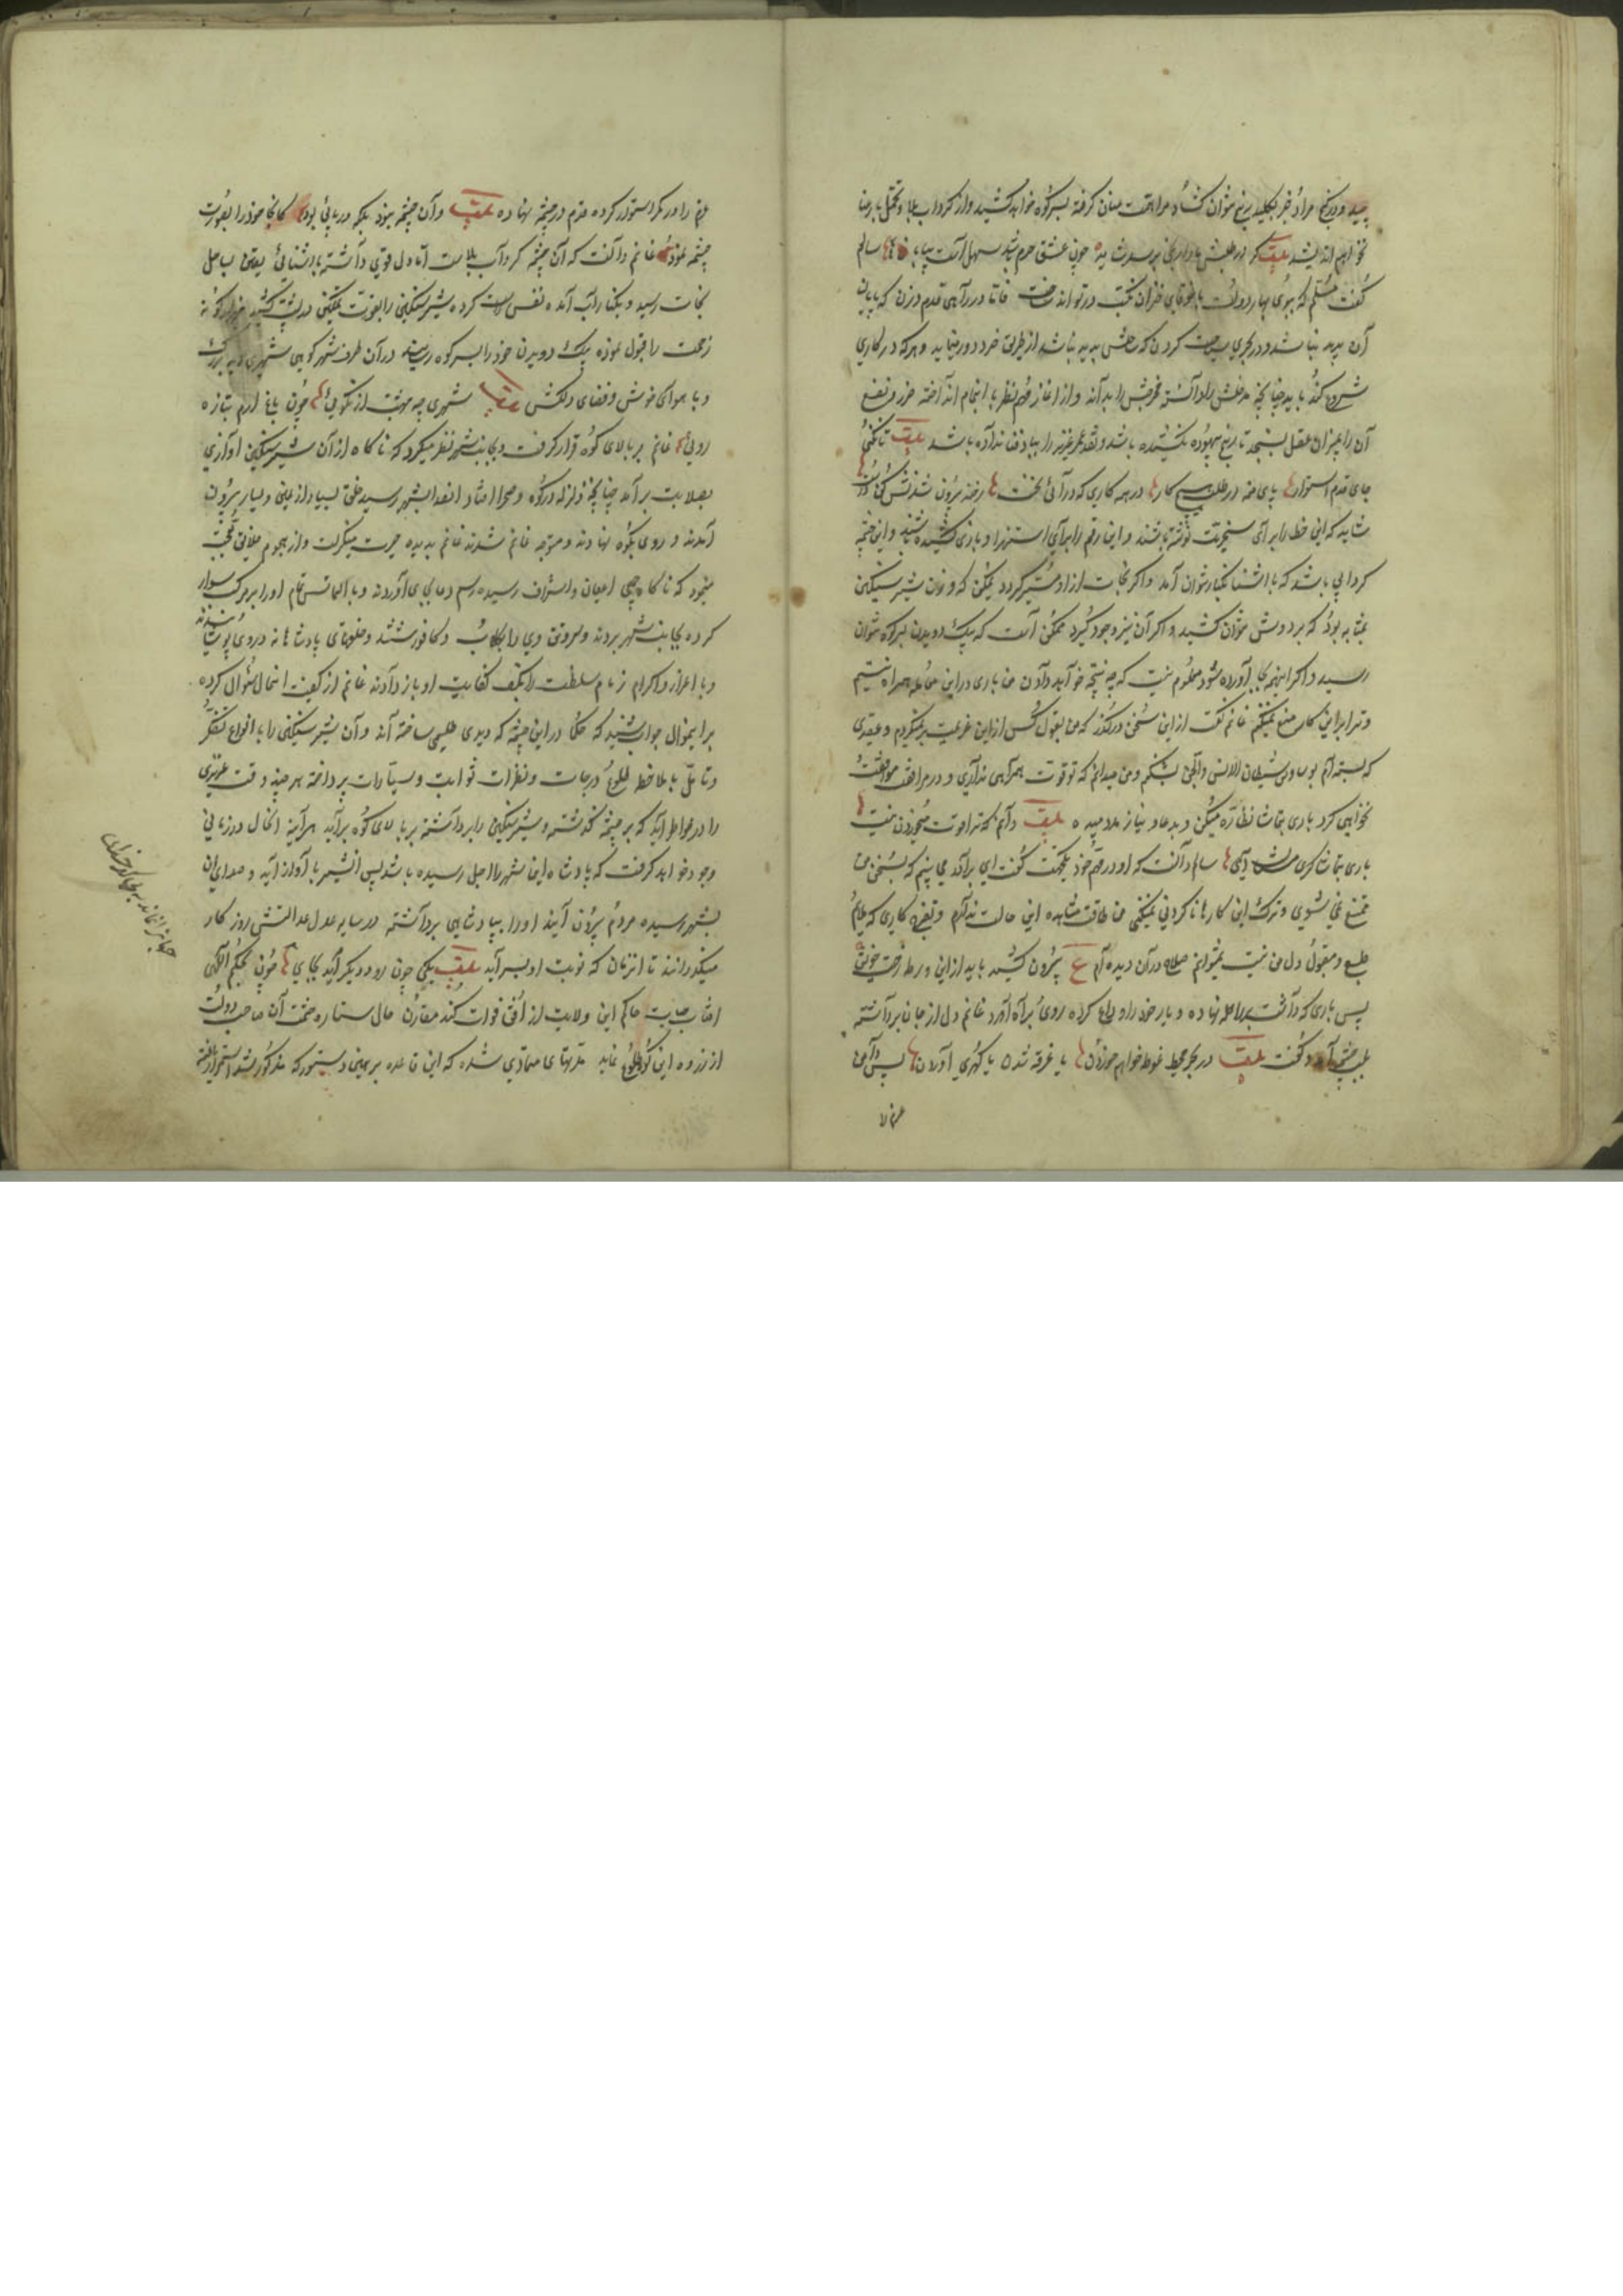 پیچید و در گنج مراد جز بکلید رنج نتوان گشاد مرا همت عنان گرفته بسر کوه خواهد کشید و از گرداب بلا و تحمل بار عنا
نخواهم اندیشید بیت گر در طلبش ما را رنجی برسد شاید چون عشق حرم باشد سهل است بیابانها سالم
گفت مسلم که ببوی بهار دولت با غوغای خزان نکبت در توان ساخت فاما در راهی قدم زدن که پایان
آن پدید نباشد و در بحری سیاحت کردن که ساحلش پدید نباشد از طریق خرد دور مینماید و هر که در کاری
شروع کند باید چنانچه مدخلش را دانسته مخرجش را بداند و از آغاز مهم نظر بانجام انداخته ضرر و نفع
آن را بمیزان عقل بسنجد تا رنج بیهوده نکشیده باشد و نقد عمر عزیز را بباد فنا نداده باشد بیت تا نکنی
جای قدم استوار پای منه در طلب هیچ کار در همه کاری که درائی نخست رخنه بیرون شدنش کن درست
شاید که این خط را برای سخریت نوشته باشند و این رقم را برای استهزا و بازی کشیده باشند و این چشمه
گردابی باشد که باشنا بکنار نتوان آمد و اگر نجات از او میسر گردد یمکن که وزن شیر سنگین
بمثابه بود که بر دوش نتوان کشید و اگر آن نیز وجود گیرد ممکن است که بیک دویدن بسر کوه نتوان
رسید و اگر اینهم بجا آورده شود معلوم نیست که چه نتیجه خواهد دادن من باری در این معامله همراه نیستم
و ترا بر این کار منع میکنم غانم گفت از این سخن درگذر که من بقول کس از این عزیمت برنمیگردم و عقدی
که بسته‌ام بوساوس شیاطین الانس والجن نشکنم و من میدانم که تو قوت همراهی نداری و در مرافقت موافقت
نخواهی کرد باری بتماشا نظاره میکن و بدعا و نیاز مدد میده بیت دانم که ترا قوت می خوردن نیست
باری بتماشاگری مستان آی سالم دانست که او در مهم خود یکجهت است گفت ای برادر می بینم که بسخن من
ممتنع نمی شوی و ترک این کار ناکردنی نمیکنی من طاقت مشاهده این حالت ندارم و تفرج کاری که ملایم
طبع و مقبول دل من نیست نمیتوانم صلاح در آن دیده‌ام ع بیرون کشید باید از این ورطه رخت خویش
پس باری که داشت بر راحله نهاده و یار خود را وداع کرده روی براه آورد غانم دل از جان برداشته
بلب چشمه آمد و گفت بیت در بحر محیط غوطه خواهم خوردن یا غرقه شدن یا گهری آوردن پس دامن
عزم را
عزم را در کمر استوار کرده قدم در چشمه نهاده بیت و آن چشمه نبود بلکه دریائی بود کانجا خود را بصورت
چشمه نمود غانم دانست که آن چشمه گرداب بلاست اما دل قوی داشته باشنائی یقین بساحل
نجات رسید و بکنار آب آمده نفس راست کرده شیر سنگین را بقوت تمکین در پشت کشید هزار گونه
زحمت را قبول نموده بیک دویدن خود را بسر کوه رسانید در آن طرف شهر کوهی شهری دید بزرگ
و با هوای خوش و فضای دلکش بیت شهری چو بهشت از نکوئی چون باغ ارم بتازه
روئی غانم بر بالای کوه قرار گرفت و بجانب شهر نظر میکرد که ناگاه از آن شیر سنگین آوازی
بصلابت برآمد چنانچه زلزله در کوه و صحرا افتاد آن صدا بشهر رسید خلق بسیار از یمین و یسار بیرون
آمدند و روی بکوه نهادند و متوجه غانم شدند غانم بدیده حیرت مینگریست و از هجوم خلایق تعجب
مینمود که ناگاه جمعی اعیان و اشراف رسیده رسم دعا بجای آوردند و بالتماس تمام او را بر مرکب سوار
کرده بجانب شهر بردند و سر و تن وی را بگلاب و کافور شستند و خلعتهای پادشاهانه در وی پوشانیدند
و با اعزاز و اکرام زمام سلطنت را بکف کفایت او باز دادند غانم از کیفیت آنحال سئوال کرده
بر اینمنوال جواب شنید که حکما در این چشمه که دیدی طلسمی ساخته‌اند و آن شیر سنگین را با انواع تفکر
و تامل با ملاحظه طلوع درجات و نظرات ثوابت و سیارات پرداخته هر چند وقت عزیزی
را در خاطر آید که بر چشمه گذشته و شیر سنگین را برداشته بر بالای کوه برآید هرآینه آنحال در زمانی
وجود خواهد گرفت که پادشاه این شهر را اجل رسیده باشد پس آن شیر بآواز آید و صدای آن
بشهر رسیده مردم بیرون آیند او را بپادشاهی برداشته در سایه عدالتش روزگار
میگذرانند تا آنزمان که نوبت او بسر آید بیت یکی چون رود دیگر آید بجای چون بحکم الهی
آفتاب حیات حاکم این ولایت از افق فوات کند مقارن حال ستاره حشمت آن صاحب دولت
از ذروه این کوه طلوع نماید مدتهای متمادی شده که این قاعده بر همین دستور که مذکور شد استمرار یافته
جهانرا نماند بیکدخدای